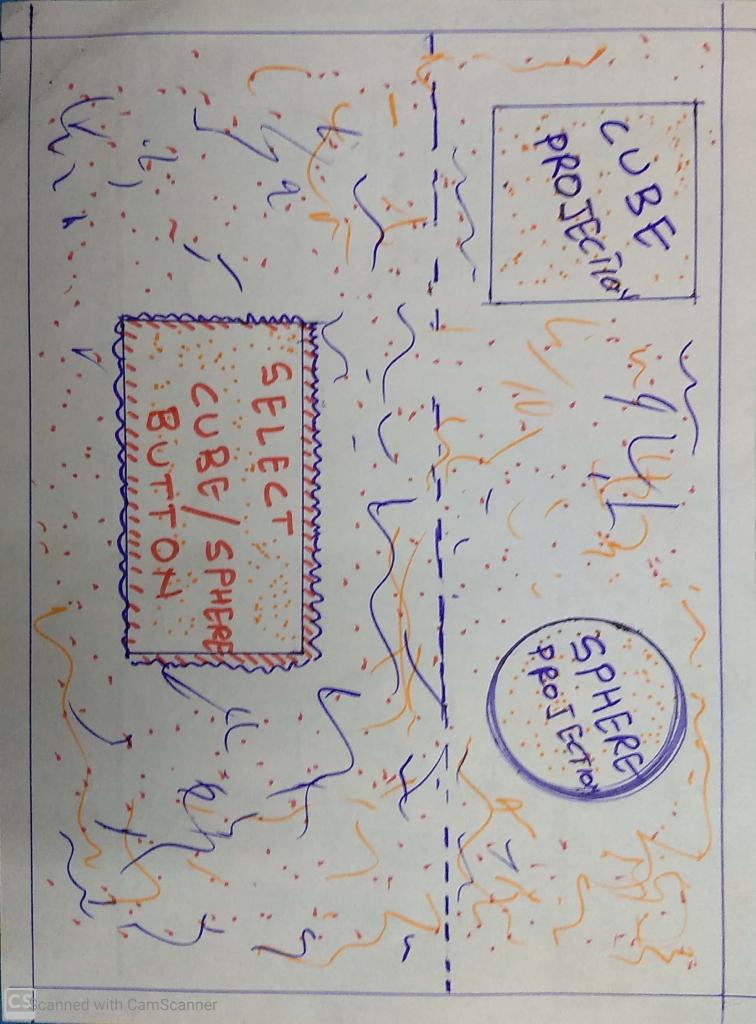 CUBE
PROJECTION
SPHERE
PROJECTION
SELECT
CUBE/SPHERE
BUTTON
CS Scanned with CamScanner